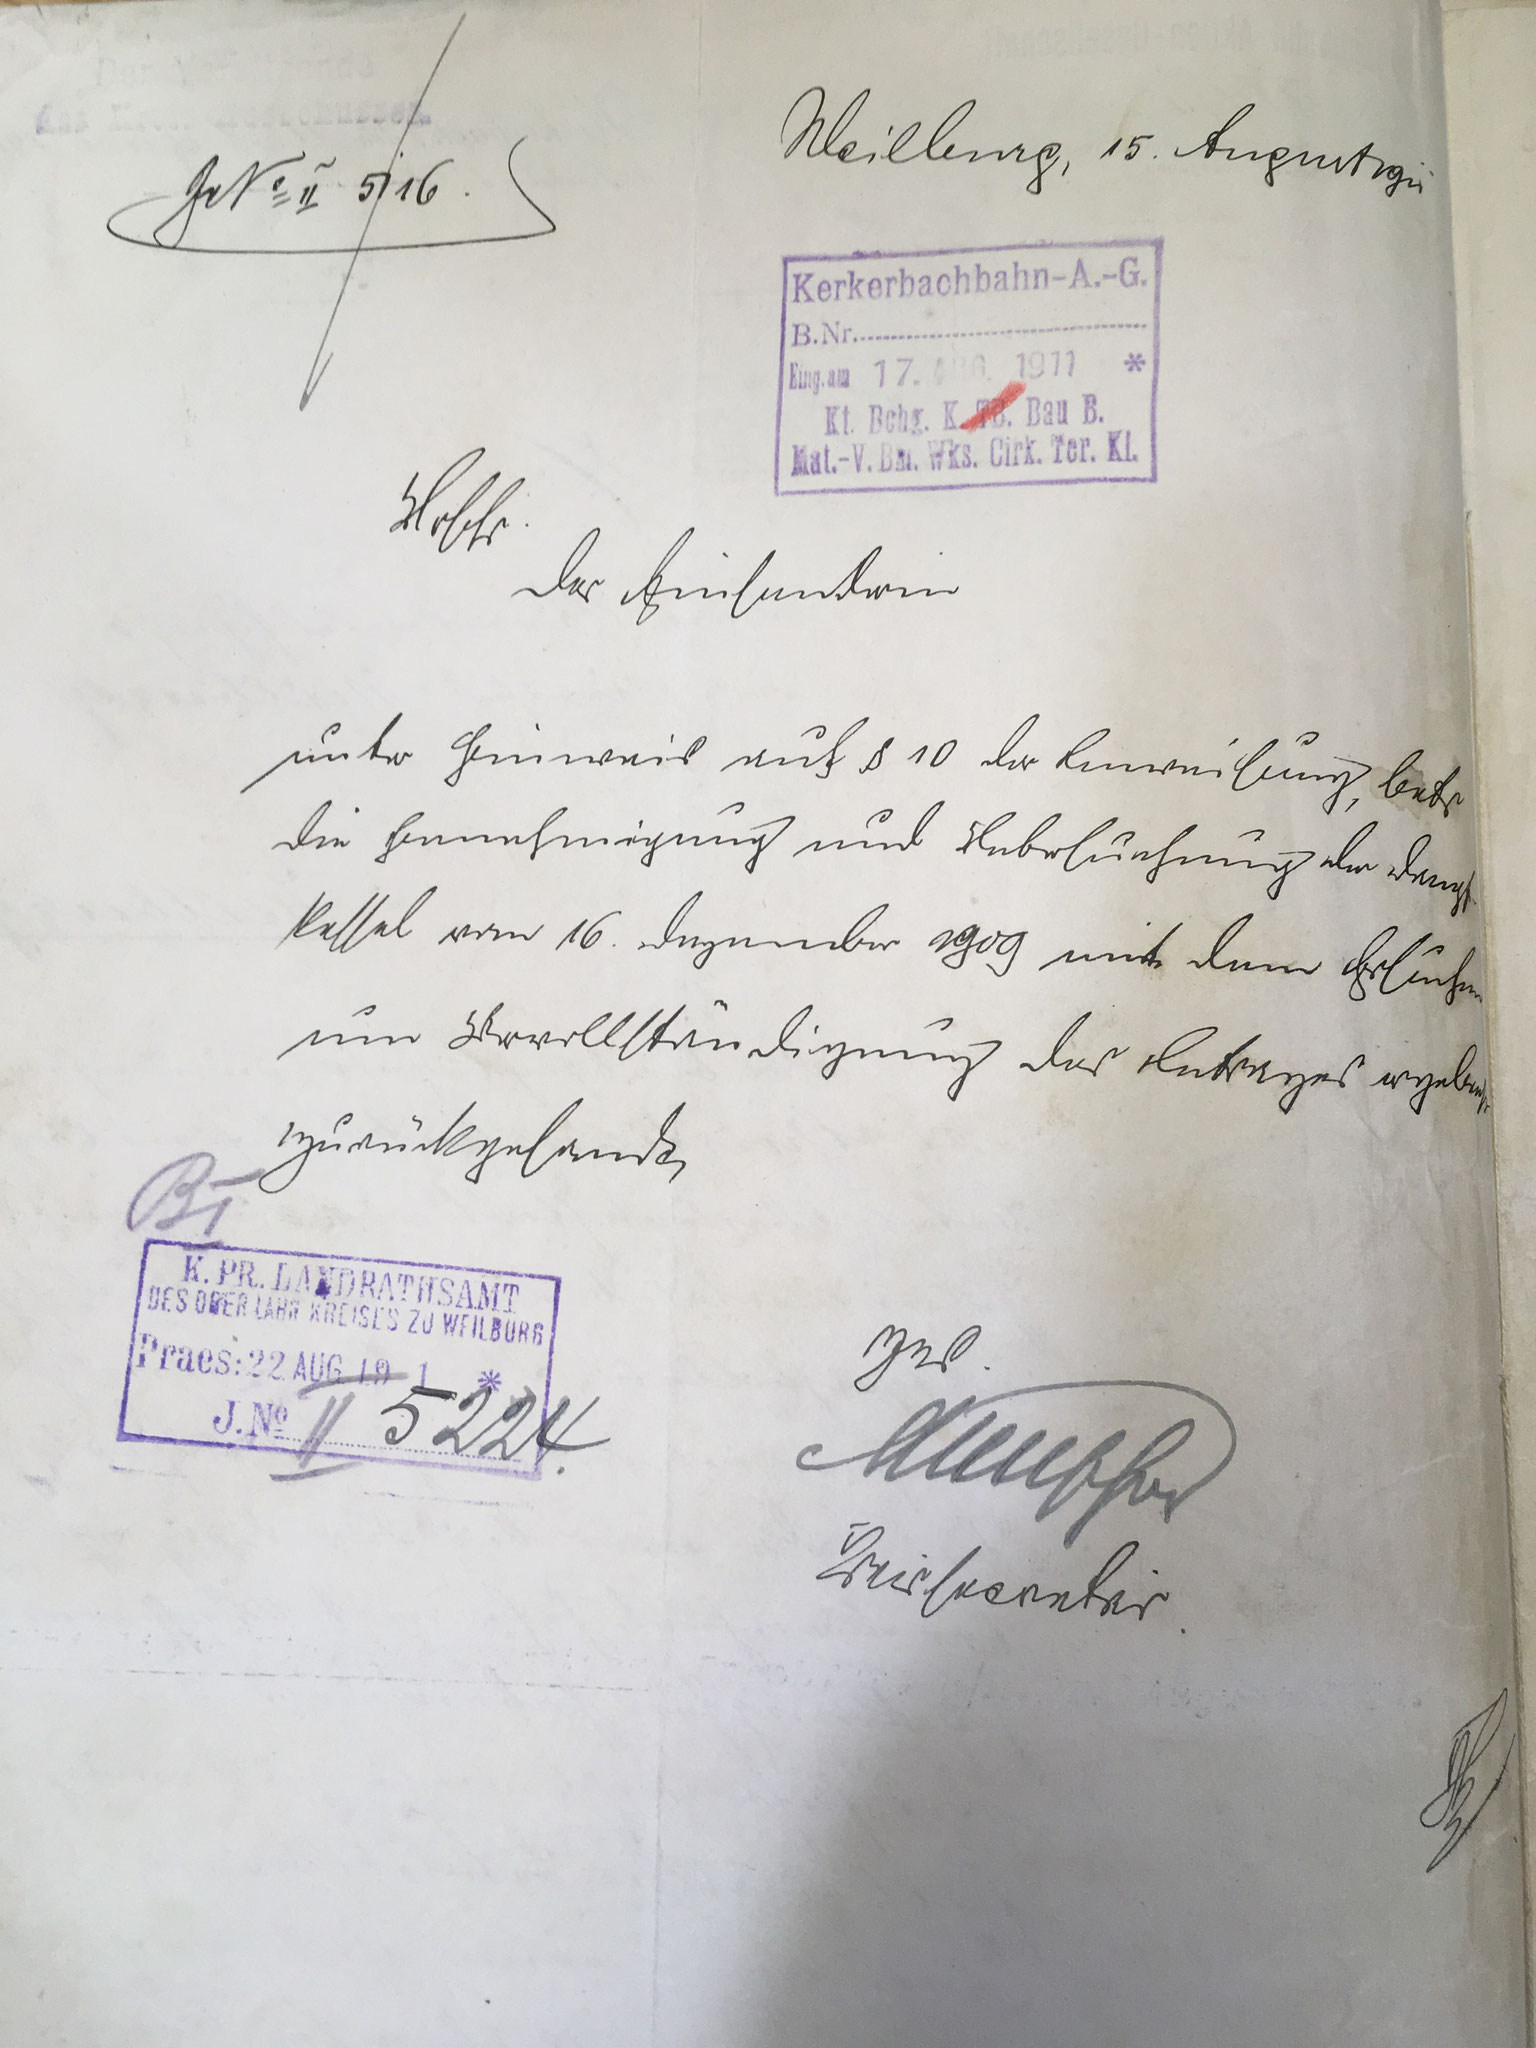 Der Vorsitzende
des Kreis-Ausschusses.
Weilburg, 15. August 1911
J. No II 5116.
Kerkerbachbahn-A.-G.
B.Nr.
Eing. am 17. AUG. 1911 *
Kt. Bchg. K. TB. Bau B.
Mat.-V. Bm. Wks. Cirk. Ter. Kl.
Urschr.
der Einsenderin
unter Hinweis auf § 10 der Anweisung, betr.
die Genehmigung und Untersuchung der Dampf-
kessel vom 16. Dezember 1909 mit dem Ersuchen
um Vervollständigung des Antrages ergebenst
zurückgesandt,
B I
K. PR. LANDRATHSAMT
DES OBER LAHN KREISES ZU WEILBURG
Praes: 22 AUG. 1911 *
J. No II 5224.
gez.
Kreissecretär.